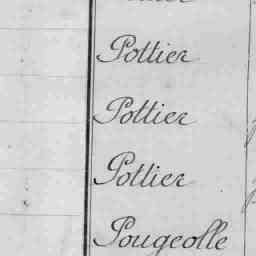 Pottier
Pottier
Pottier
Pougeolle